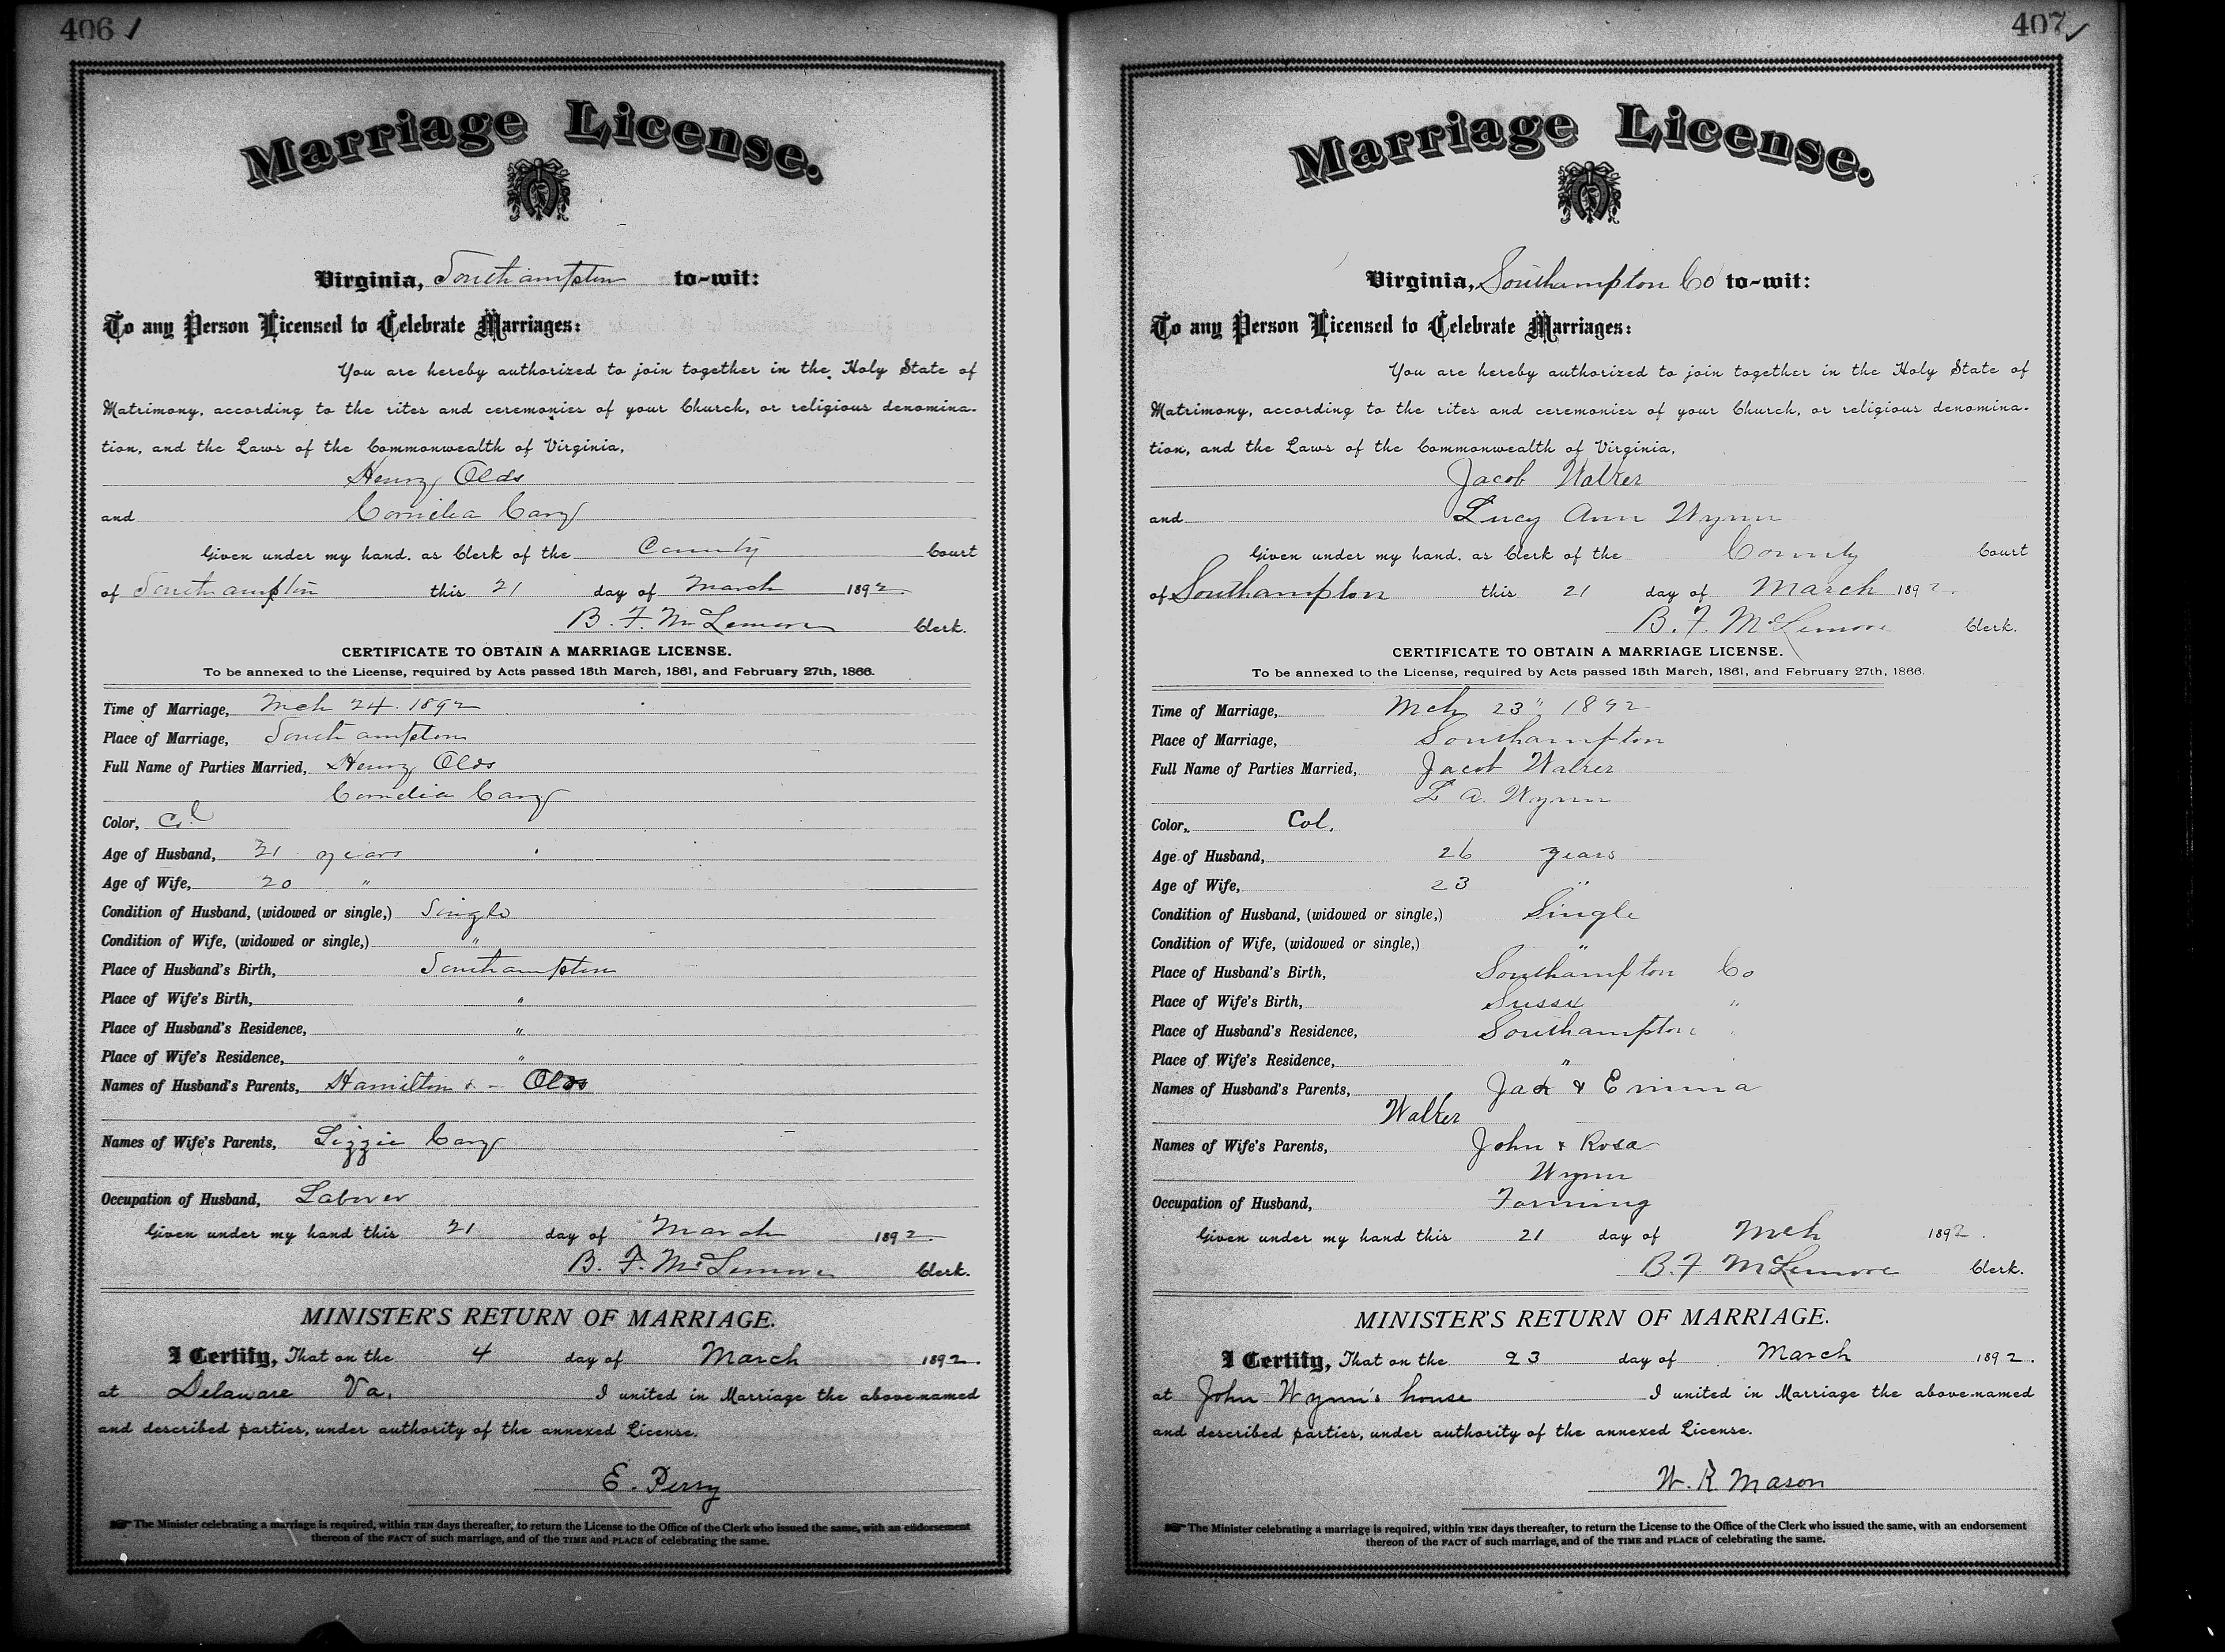 406
Marriage License.
Virginia, Southampton to-wit:
To any Person Licensed to Celebrate Marriages:
You are hereby authorized to join together in the Holy State of
Matrimony, according to the rites and ceremonies of your Church, or religious denomina-
tion, and the Laws of the Commonwealth of Virginia,
Henry Olds
and Cornelia Cary
Given under my hand, as Clerk of the County Court
of Southampton this 21 day of March 1892.
B. F. McLemore Clerk.
CERTIFICATE TO OBTAIN A MARRIAGE LICENSE.
To be annexed to the License, required by Acts passed 15th March, 1861, and February 27th, 1866.
Time of Marriage, Mch 24. 1892
Place of Marriage, Southampton
Full Name of Parties Married, Henry Olds
Cornelia Cary
Color, Col
Age of Husband, 31 years
Age of Wife, 20 "
Condition of Husband, (widowed or single,) Single
Condition of Wife, (widowed or single,) "
Place of Husband's Birth, Southampton
Place of Wife's Birth, "
Place of Husband's Residence, "
Place of Wife's Residence, "
Names of Husband's Parents, Hamilton & - Olds
Names of Wife's Parents, Lizzie Cary
Occupation of Husband, Laborer
Given under my hand this 21 day of March 1892.
B. F. McLemore Clerk.
MINISTER'S RETURN OF MARRIAGE.
I Certify, That on the 4 day of March 1892.
at Delaware Va. I united in Marriage the above-named
and described parties, under authority of the annexed License.
E. Perry
The Minister celebrating a marriage is required, within TEN days thereafter, to return the License to the Office of the Clerk who issued the same, with an endorsement
thereof of the FACT of such marriage, and of the TIME and PLACE of celebrating the same.
407
Marriage License.
Virginia, Southampton Co to-wit:
To any Person Licensed to Celebrate Marriages:
You are hereby authorized to join together in the Holy State of
Matrimony, according to the rites and ceremonies of your Church, or religious denomina-
tion, and the Laws of the Commonwealth of Virginia,
Jacob Walker
and Lucy Ann Wynn
Given under my hand, as Clerk of the County Court
of Southampton this 21 day of March 1892.
B. F. McLemore Clerk.
CERTIFICATE TO OBTAIN A MARRIAGE LICENSE.
To be annexed to the License, required by Acts passed 15th March, 1861, and February 27th, 1866.
Time of Marriage, Mch 23" 1892
Place of Marriage, Southampton
Full Name of Parties Married, Jacob Walker
L A. Wynn
Color, Col.
Age of Husband, 26 years
Age of Wife, 23 "
Condition of Husband, (widowed or single,) Single
Condition of Wife, (widowed or single,) "
Place of Husband's Birth, Southampton Co
Place of Wife's Birth, Sussx "
Place of Husband's Residence, Southampton "
Place of Wife's Residence, "
Names of Husband's Parents, Jack & Emma
Walker
Names of Wife's Parents, John & Rosa
Wynn
Occupation of Husband, Farming
Given under my hand this 21 day of Mch 1892.
B. F. McLemore Clerk.
MINISTER'S RETURN OF MARRIAGE.
I Certify, That on the 23 day of March 1892.
at John Wynn's house I united in Marriage the above-named
and described parties, under authority of the annexed License.
W. R. Mason
The Minister celebrating a marriage is required, within TEN days thereafter, to return the License to the Office of the Clerk who issued the same, with an endorsement
thereon of the FACT of such marriage, and of the TIME and PLACE of celebrating the same.